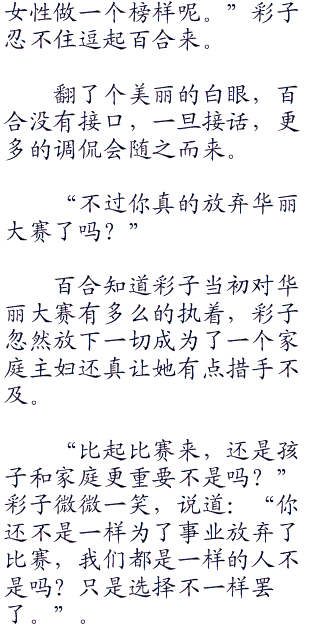 女性做一个榜样呢。”彩子
忍不住逗起百合来。
翻了个美丽的白眼，百
合没有接口，一旦接话，更
多的调侃会随之而来。
“不过你真的放弃华丽
大赛了吗？”
百合知道彩子当初对华
丽大赛有多么的执着，彩子
忽然放下一切成为了一个家
庭主妇还真让她有点措手不
及。
“比起比赛来，还是孩
子和家庭更重要不是吗？”
彩子微微一笑，说道：“你
还不是一样为了事业放弃了
比赛，我们都是一样的人不
是吗？只是选择不一样罢
了。”。